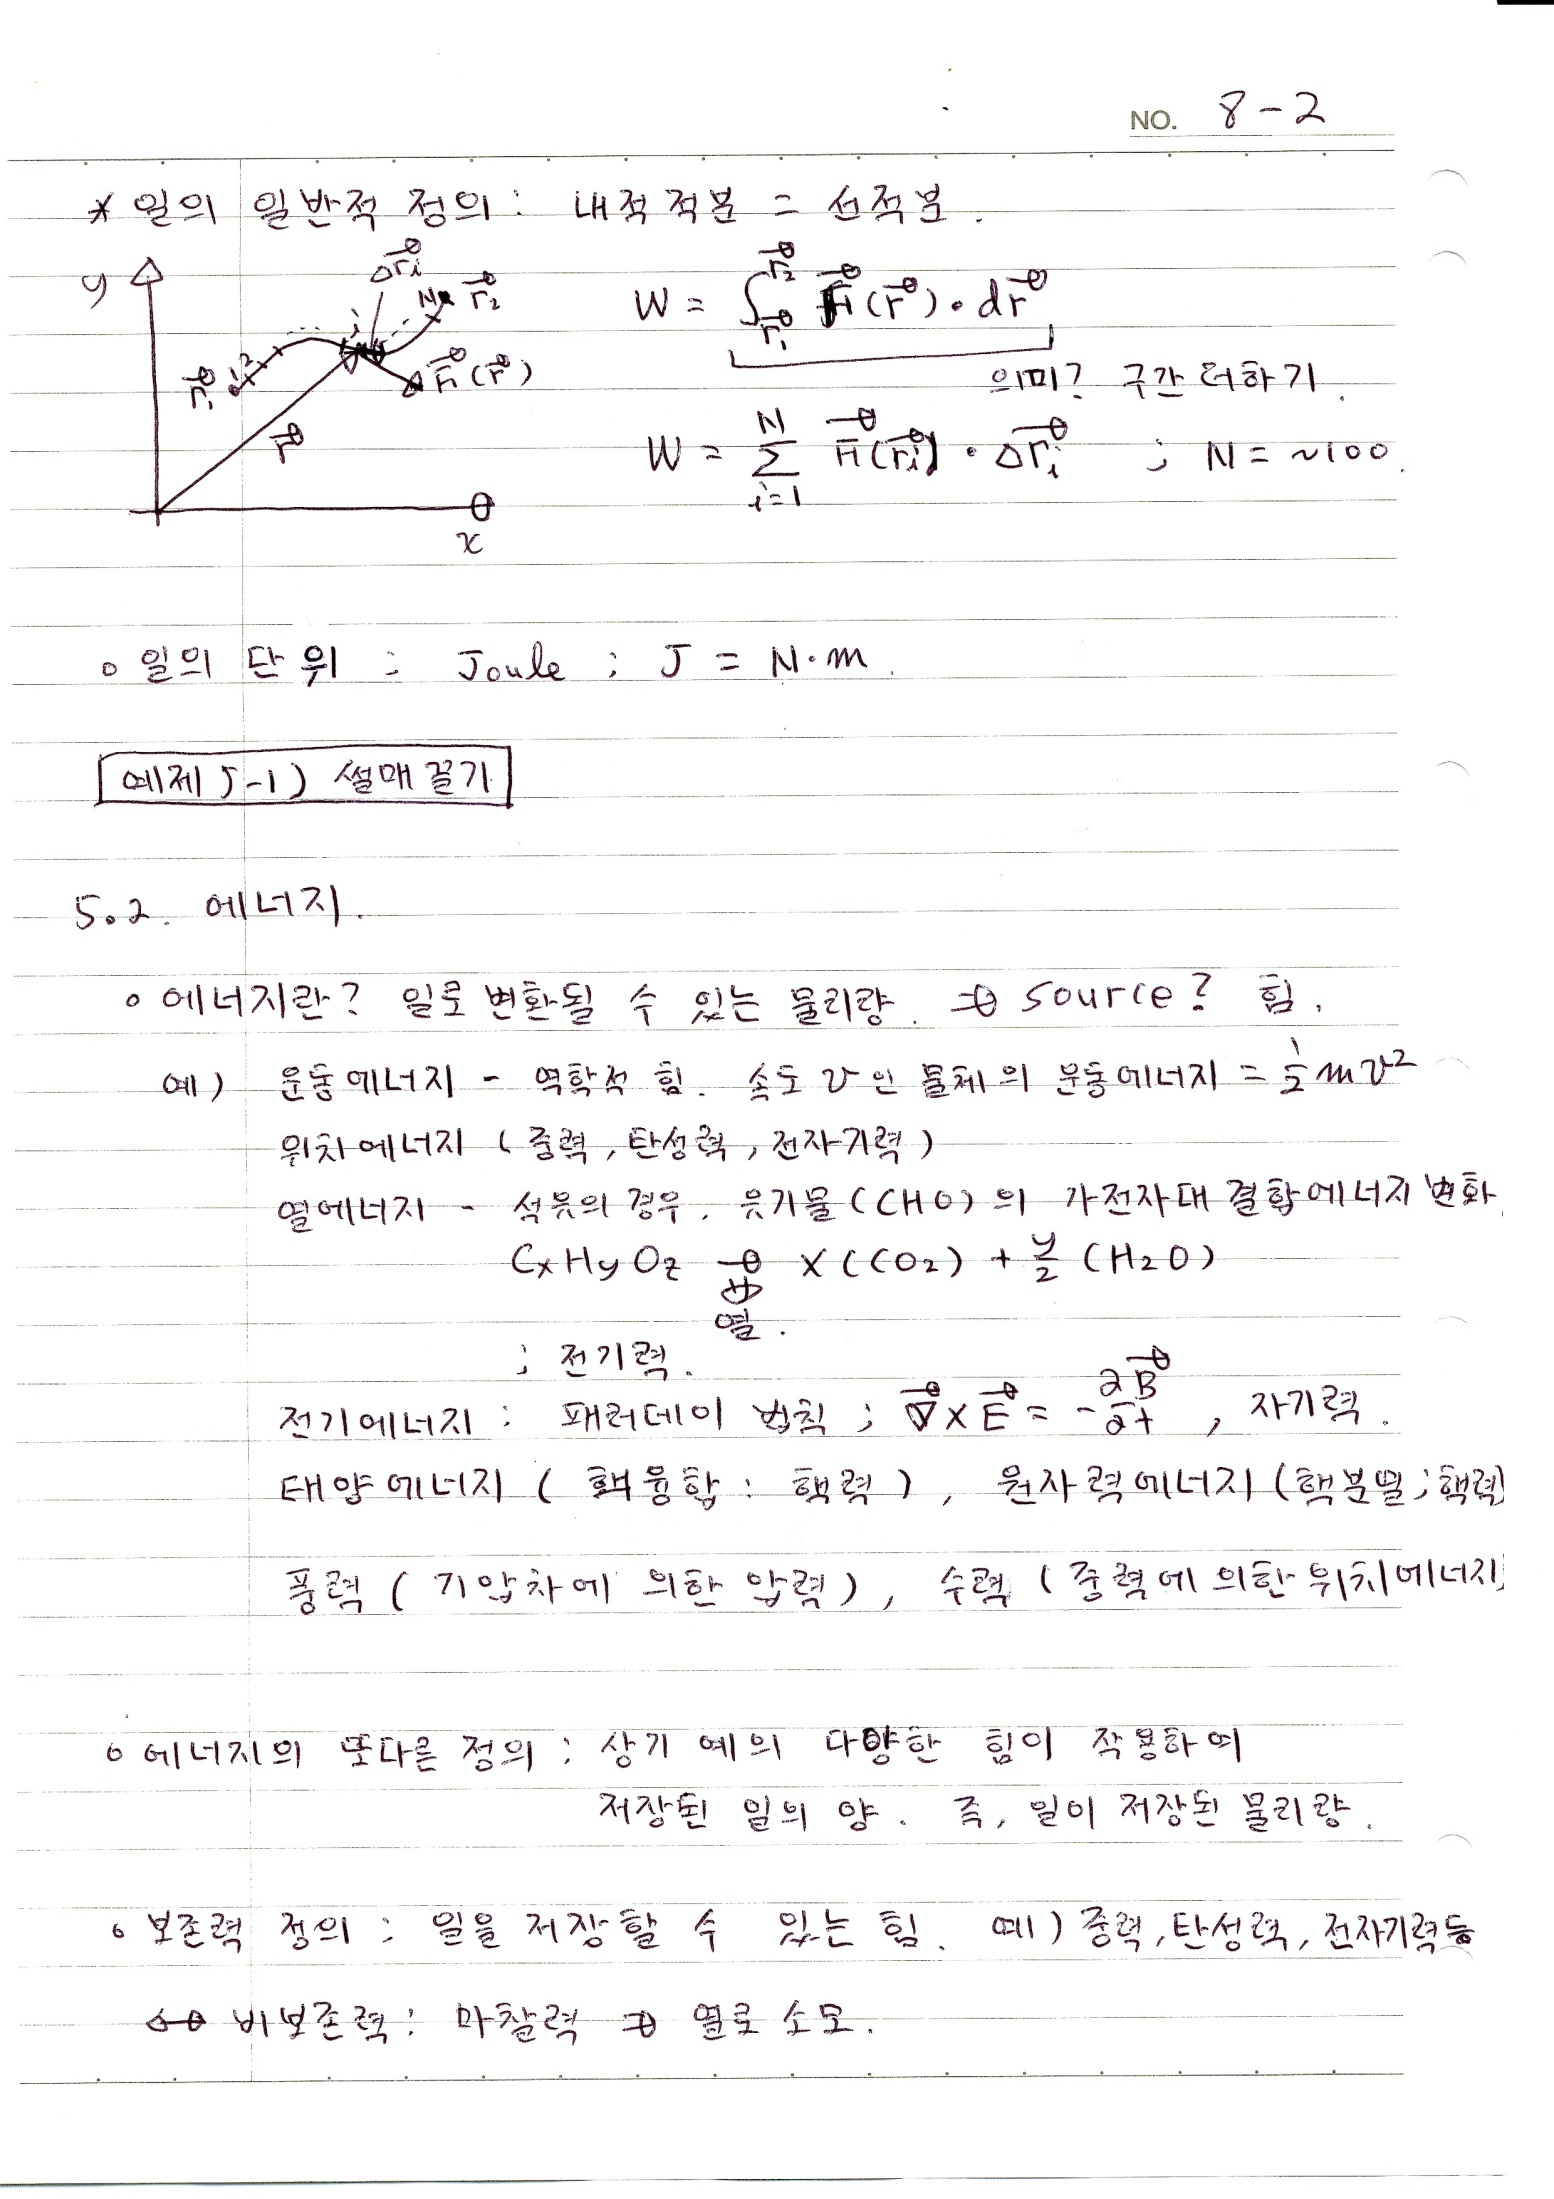 NO. 8-2
* 일의 일반적 정의 : 내적적분 = 선적분.
y
Δr⃗i
N r⃗2
i
r⃗1 1 2
F⃗(r⃗)
r⃗
x
W = ∫_{r⃗1}^{r⃗2} F⃗(r⃗)·dr⃗
의미? 구간 더하기.
W = Σ_{i=1}^{N} F⃗(r⃗i)·Δr⃗i ; N = ~100.
o 일의 단위 : Joule ; J = N·m.
예제 5-1) 썰매끌기
5.2. 에너지.
o 에너지란? 일로 변환될 수 있는 물리량. → source? 힘.
예) 운동에너지 - 역학적 힘. 속도 v인 물체의 운동에너지 = 1/2 mv²
위치에너지 (중력, 탄성력, 전자기력)
열에너지 - 석유의 경우. 유기물(CHO)의 가전자대 결합에너지 변화
CxHyOz → x(CO₂) + y/2 (H₂O)
열.
; 전기력.
전기에너지 : 패러데이 법칙 ; ∇⃗×E⃗ = -∂B⃗/∂t , 자기력.
태양에너지 (핵융합 : 핵력), 원자력에너지 (핵분열; 핵력)
풍력 (기압차에 의한 압력), 수력 (중력에 의한 위치에너지)
o 에너지의 또다른 정의 : 상기 예의 다양한 힘이 작용하여
저장된 일의 양. 즉, 일이 저장된 물리량.
o 보존력 정의 : 일을 저장할 수 있는 힘. 예) 중력, 탄성력, 전자기력 등
↔ 비보존력 : 마찰력 → 열로 소모.